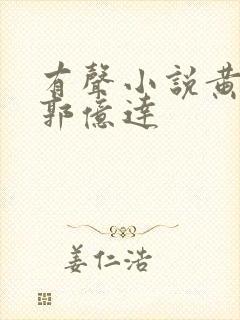 有聲小說黄
郭億達
姜仁浩